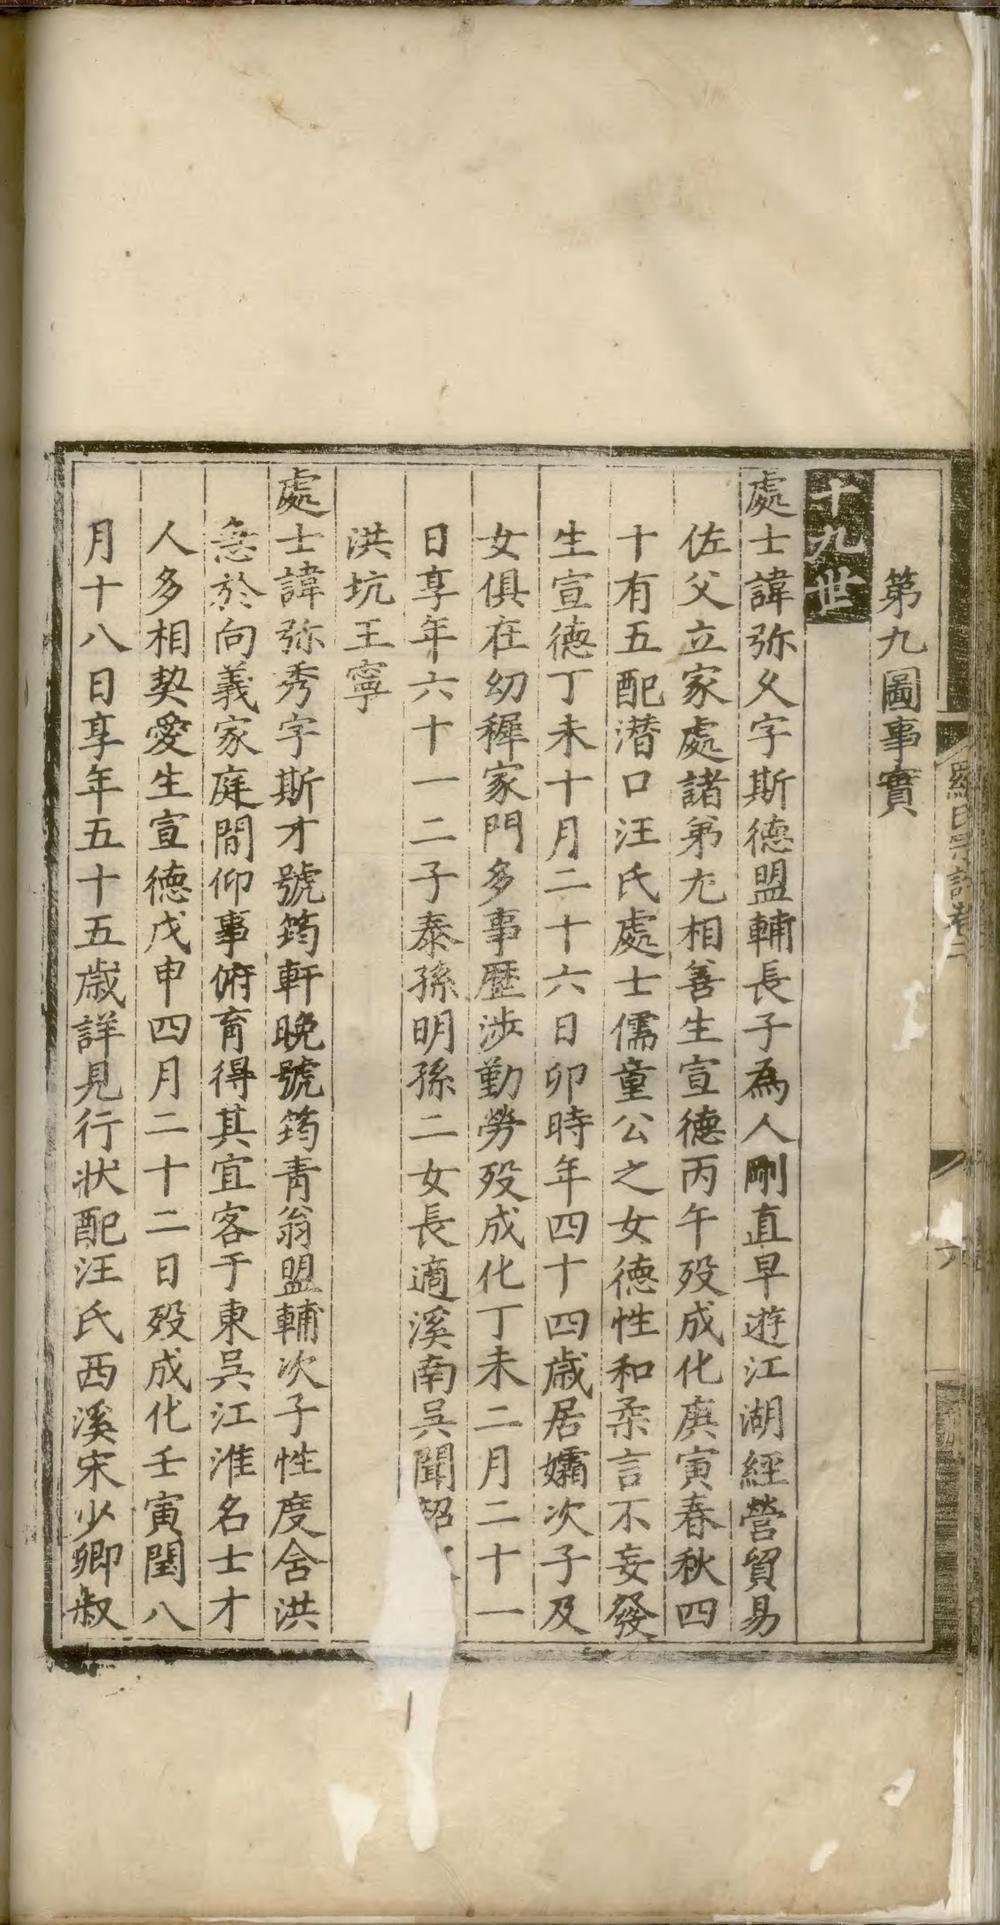 第九圖事實
十九世
處士諱弥久字斯德盟輔長子為人剛直早遊江湖經營貿易
佐父立家處諸弟尢相善生宣德丙午歿成化庚寅春秋四
十有五配潛口汪氏處士儒童公之女德性和柔言不妄發
生宣德丁未十月二十六日卯時年四十四歲居孀次子及
女俱在幼穉家門多事歷涉勤勞歿成化丁未二月二十一
日享年六十一二子泰孫明孫二女長適溪南吳聞
洪坑王寧
處士諱弥秀字斯才號筠軒晚號筠青翁盟輔次子性度舍洪
急於向義家庭間仰事俯育得其宜客于東吳江淮名士才
人多相契愛生宣德戊申四月二十二日歿成化壬寅閏八
月十八日享年五十五歲詳見行狀配汪氏西溪宋少卿叔